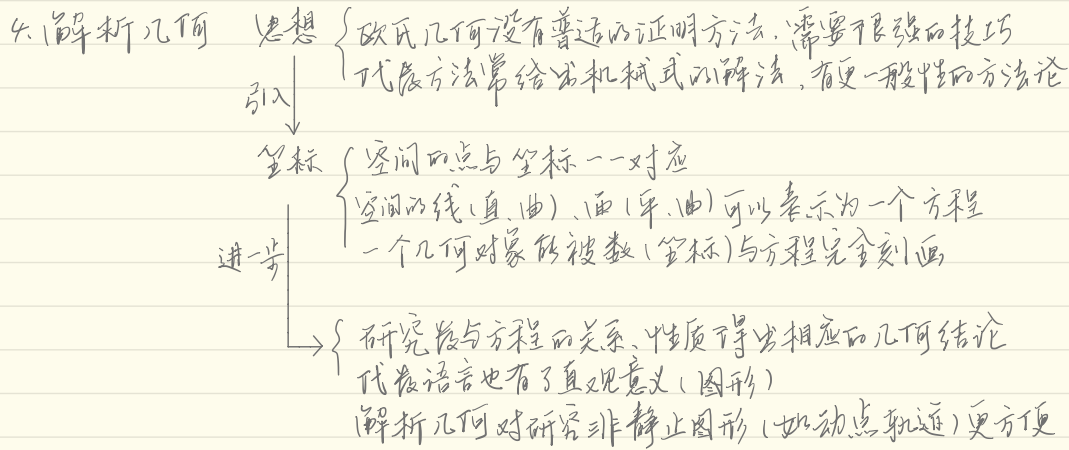 4. 解析几何 思想 欧氏几何没有普适的证明方法,需要很强的技巧
代数方法常给出机械式的解法,有更一般性的方法论
引入
坐标 空间的点与坐标一一对应
空间的线(直、曲)、面(平、曲)可以表示为一个方程
一个几何对象能被数(坐标)与方程完全刻画
进一步
研究数与方程的关系、性质得出相应的几何结论
代数语言也有了直观意义(图形)
解析几何对研究非静止图形(如动点轨迹)更方便